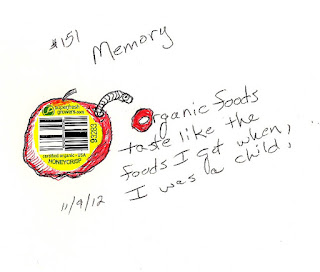 #151
Memory
superfresh
growers.com
93283
certified organic • USA
HONEYCRISP
Organic foods
taste like the
foods I got when,
I was a child.
11/9/12